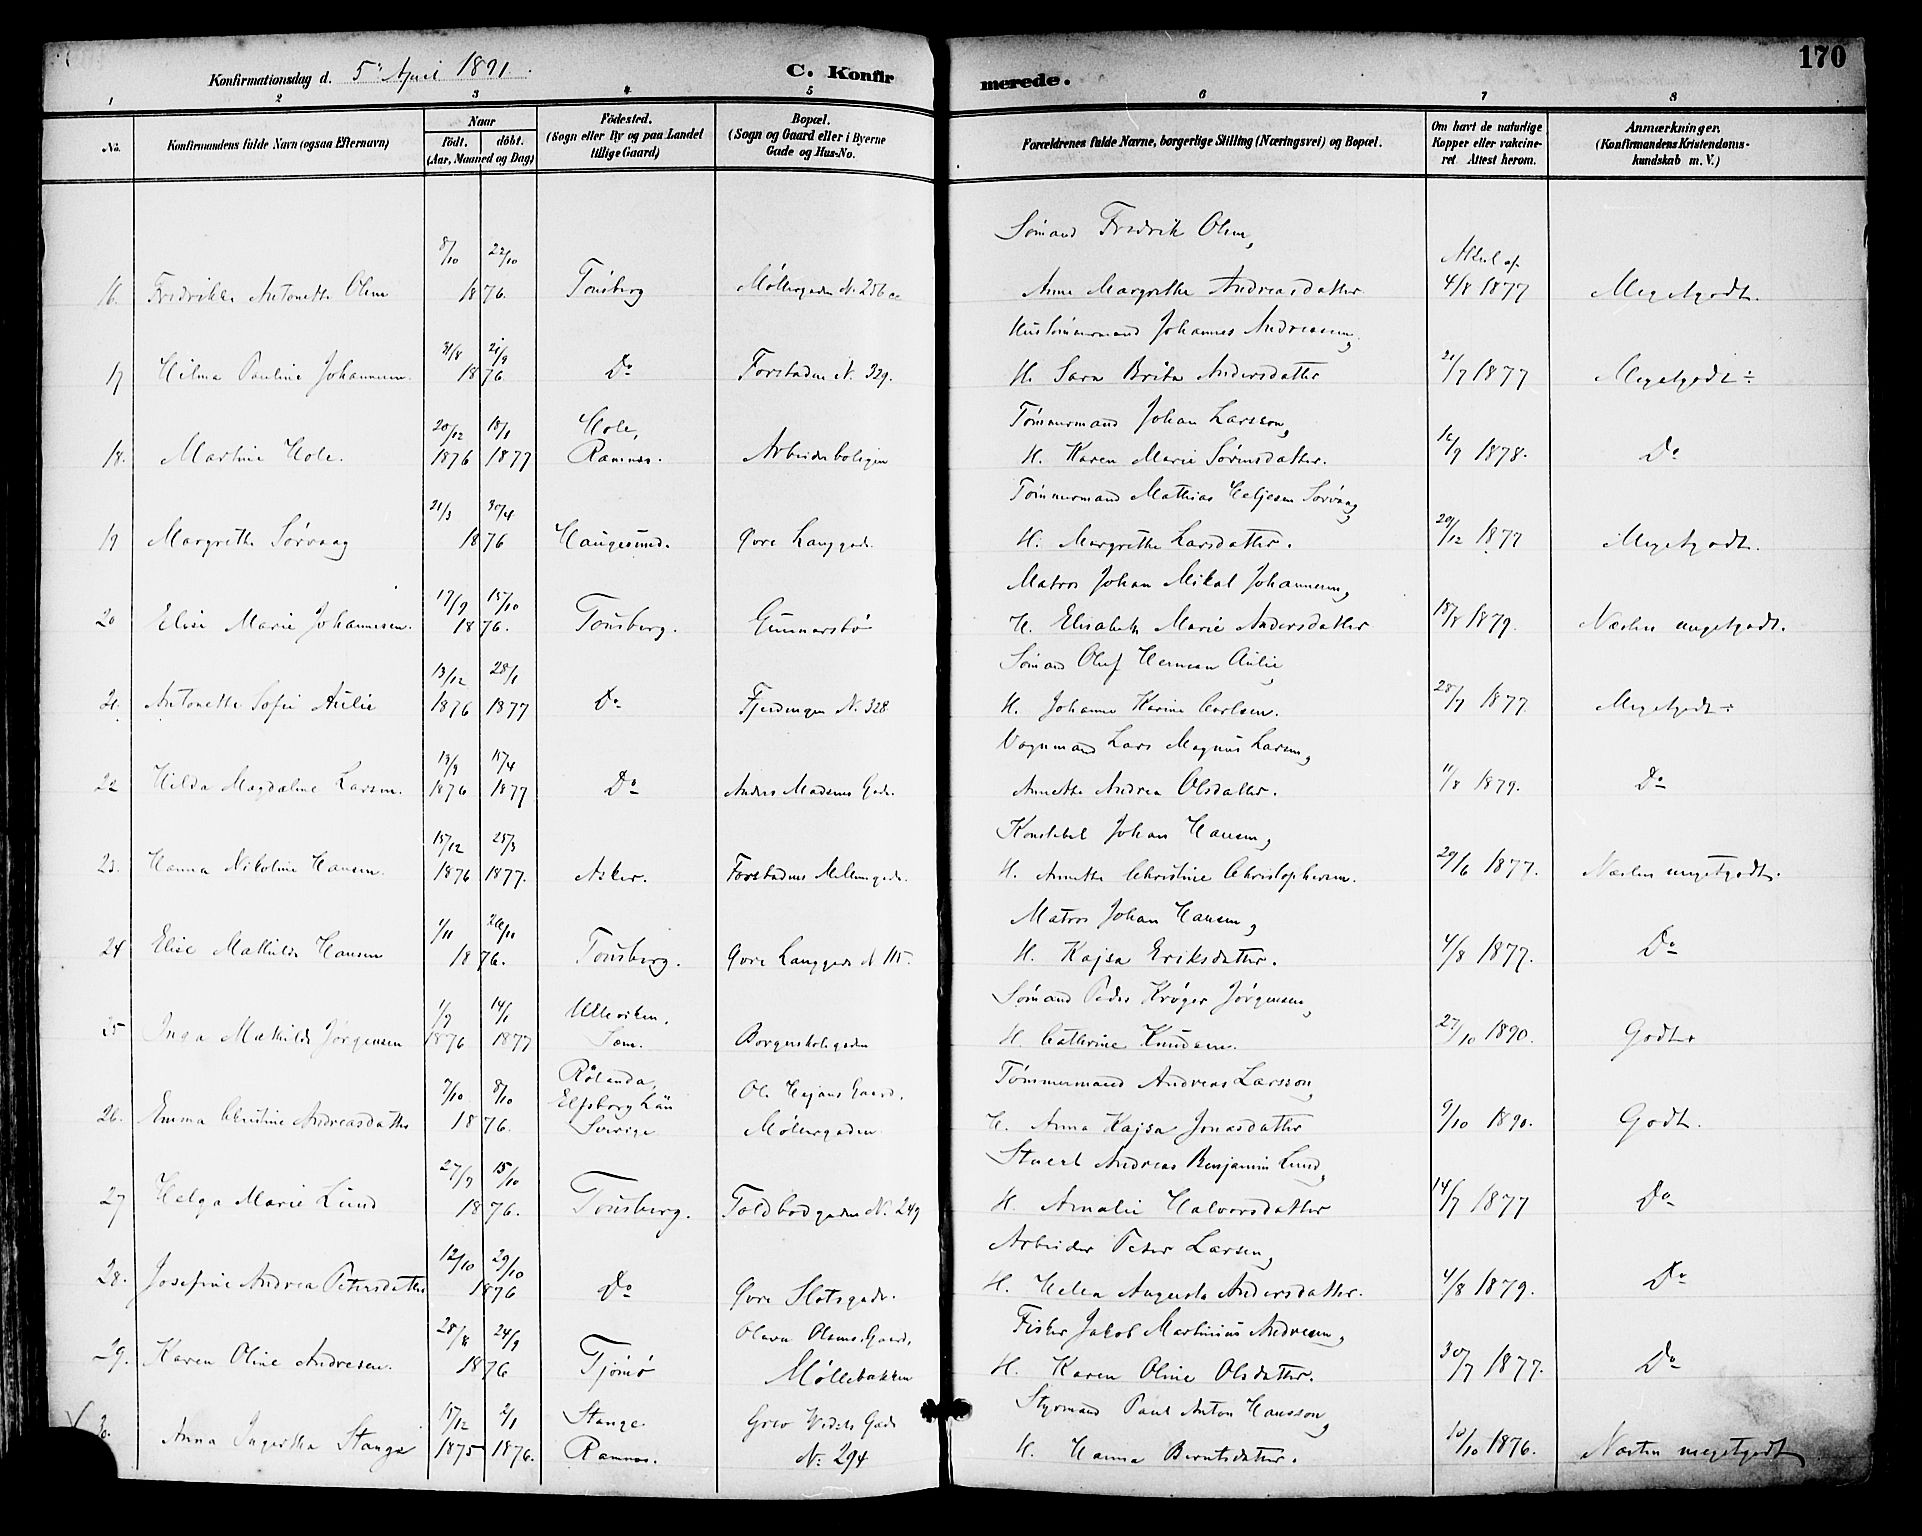 170
Konfirmationsdag d. 5te April 1891.
C. Konfirmerede.
1 2 3 4 5 6 7 8
No. Konfirmandens fulde Navn (ogsaa Efternavn) Naar födt. döbt. (Aar, Maaned og Dag) Födested. (Sogn eller By og paa Landet tillige Gaard) Bopæl. (Sogn og Gaard eller i Byerne Gade og Hus-No. Forældrenes fulde Navne, borgerlige Stilling (Næringsvei) og Bopæl. Om havt de naturlige Kopper eller vakcineret Attest herom. Anmærkninger. (Konfirmandens Kristendomskundskab m. V.)
Sømand Fredrik Olsen,
16. Fredrikke Antonette Olsen 8/10 22/10 1876. Tønsberg Møllergaden N. 256 a Anne Margrethe Andreasdatter Attest af 4/8 1877 Megetgodt.
Hustømmermand Johannes Andreasen,
17 Hilma Pauline Johannesen. 31/8 21/9 1876 Do Forstaden N. 329. H. Sara Brita Andersdatter 21/7 1877 Megetgodt ÷
Tømmermand Johan Larsson,
18. Martine Hole. 20/12 1876 18/1 1877 Hole, Ramnes. Arbeiderboligen H. Karen Marie Sørensdatter. 12/9 1878. Do
Tømmermand Mathias Heljesen Sørvaag,
19 Margrethe Sørvaag 21/3 30/4 1876 Haugesund. Øvre Langgade. H. Margrethe Larsdatter. 20/12 1877 Megetgodt.
Matros Johan Mikal Johannesen,
20 Elise Marie Johannesen. 17/9 15/10 1876. Tønsberg. Gunnarsbø H. Elisabeth Marie Andersdatter 18/8 1879. Næsten megetgodt.
Sømand Oluf Herman Aulie,
21. Antonette Sofie Aulie 13/12 1876 28/1 1877 Do Fjerdingen N. 328 H. Johanne Karine Carlsen. 28/7 1877 Megetgodt ÷
Vognmand Lars Magnus Larsen,
22 Hilda Magdaline Larsen. 13/9 1876 15/4 1877 Do Anders Madsens Gade. Annette Andrea Olsdatter. 11/8 1879. Do
Konstabel Johan Hansen,
23. Hanna Nikoline Hansen. 15/12 1876 25/3 1877. Asker. Forstadens Mellemgade. H. Annette Christine Christophersen. 29/6 1877. Næsten megetgodt.
Matros Johan Hansen,
24 Elise Mathilde Hansen 1/11 26/11 1876. Tønsberg. Øvre Langgade N 115. H. Kajsa Eriksdatter. 4/8 1877. Do
Sømand Peder Krøger Jørgensen,
25 Inga Mathilde Jørgensen 1/9 1876 14/1 1877 Ulleviken, Sem. Borgerskolegaden H. Cathrine Knudsen. 27/10 1890. Godt+
Tømmermand Andreas Larsson,
26. Emma Christine Andreasdatter 7/10 8/10 1876. Rölanda, Elfsborg Län Sverige Ol. Hejans Gaard, Møllergaden H. Anna Kajsa Jonasdatter 9/10 1890. Godt.
Stuert Andreas Benjamin Lund,
27 Helga Marie Lund 27/9 15/10 1876. Tønsberg. Toldbodgaden N. 249 H. Amalie Halvorsdatter 14/7 1877 Do
Arbeider Peter Larsen,
28. Josefine Andrea Petersdatter 12/10 29/10 1876 Do Øvre Slotsgade. H. Helen Augusta Andersdatter. 4/8 1879. Do
Fisker Jakob Martinius Andresen,
29. Karen Oline Andresen. 28/8 24/9 1876 Tjømø Olava Olsens Gaard, Møllebakken H. Karen Oline Olsdatter. 30/7 1877. Do
Styrmand Paul Anton Hansson,
30. Anna Ingertha Stange 15/12 1875 2/1 1876. Stange. Ramnes. Grev Wedels Gade N. 294 H. Hanna Berntsdatter. 10/10 1876. Næsten megetgodt